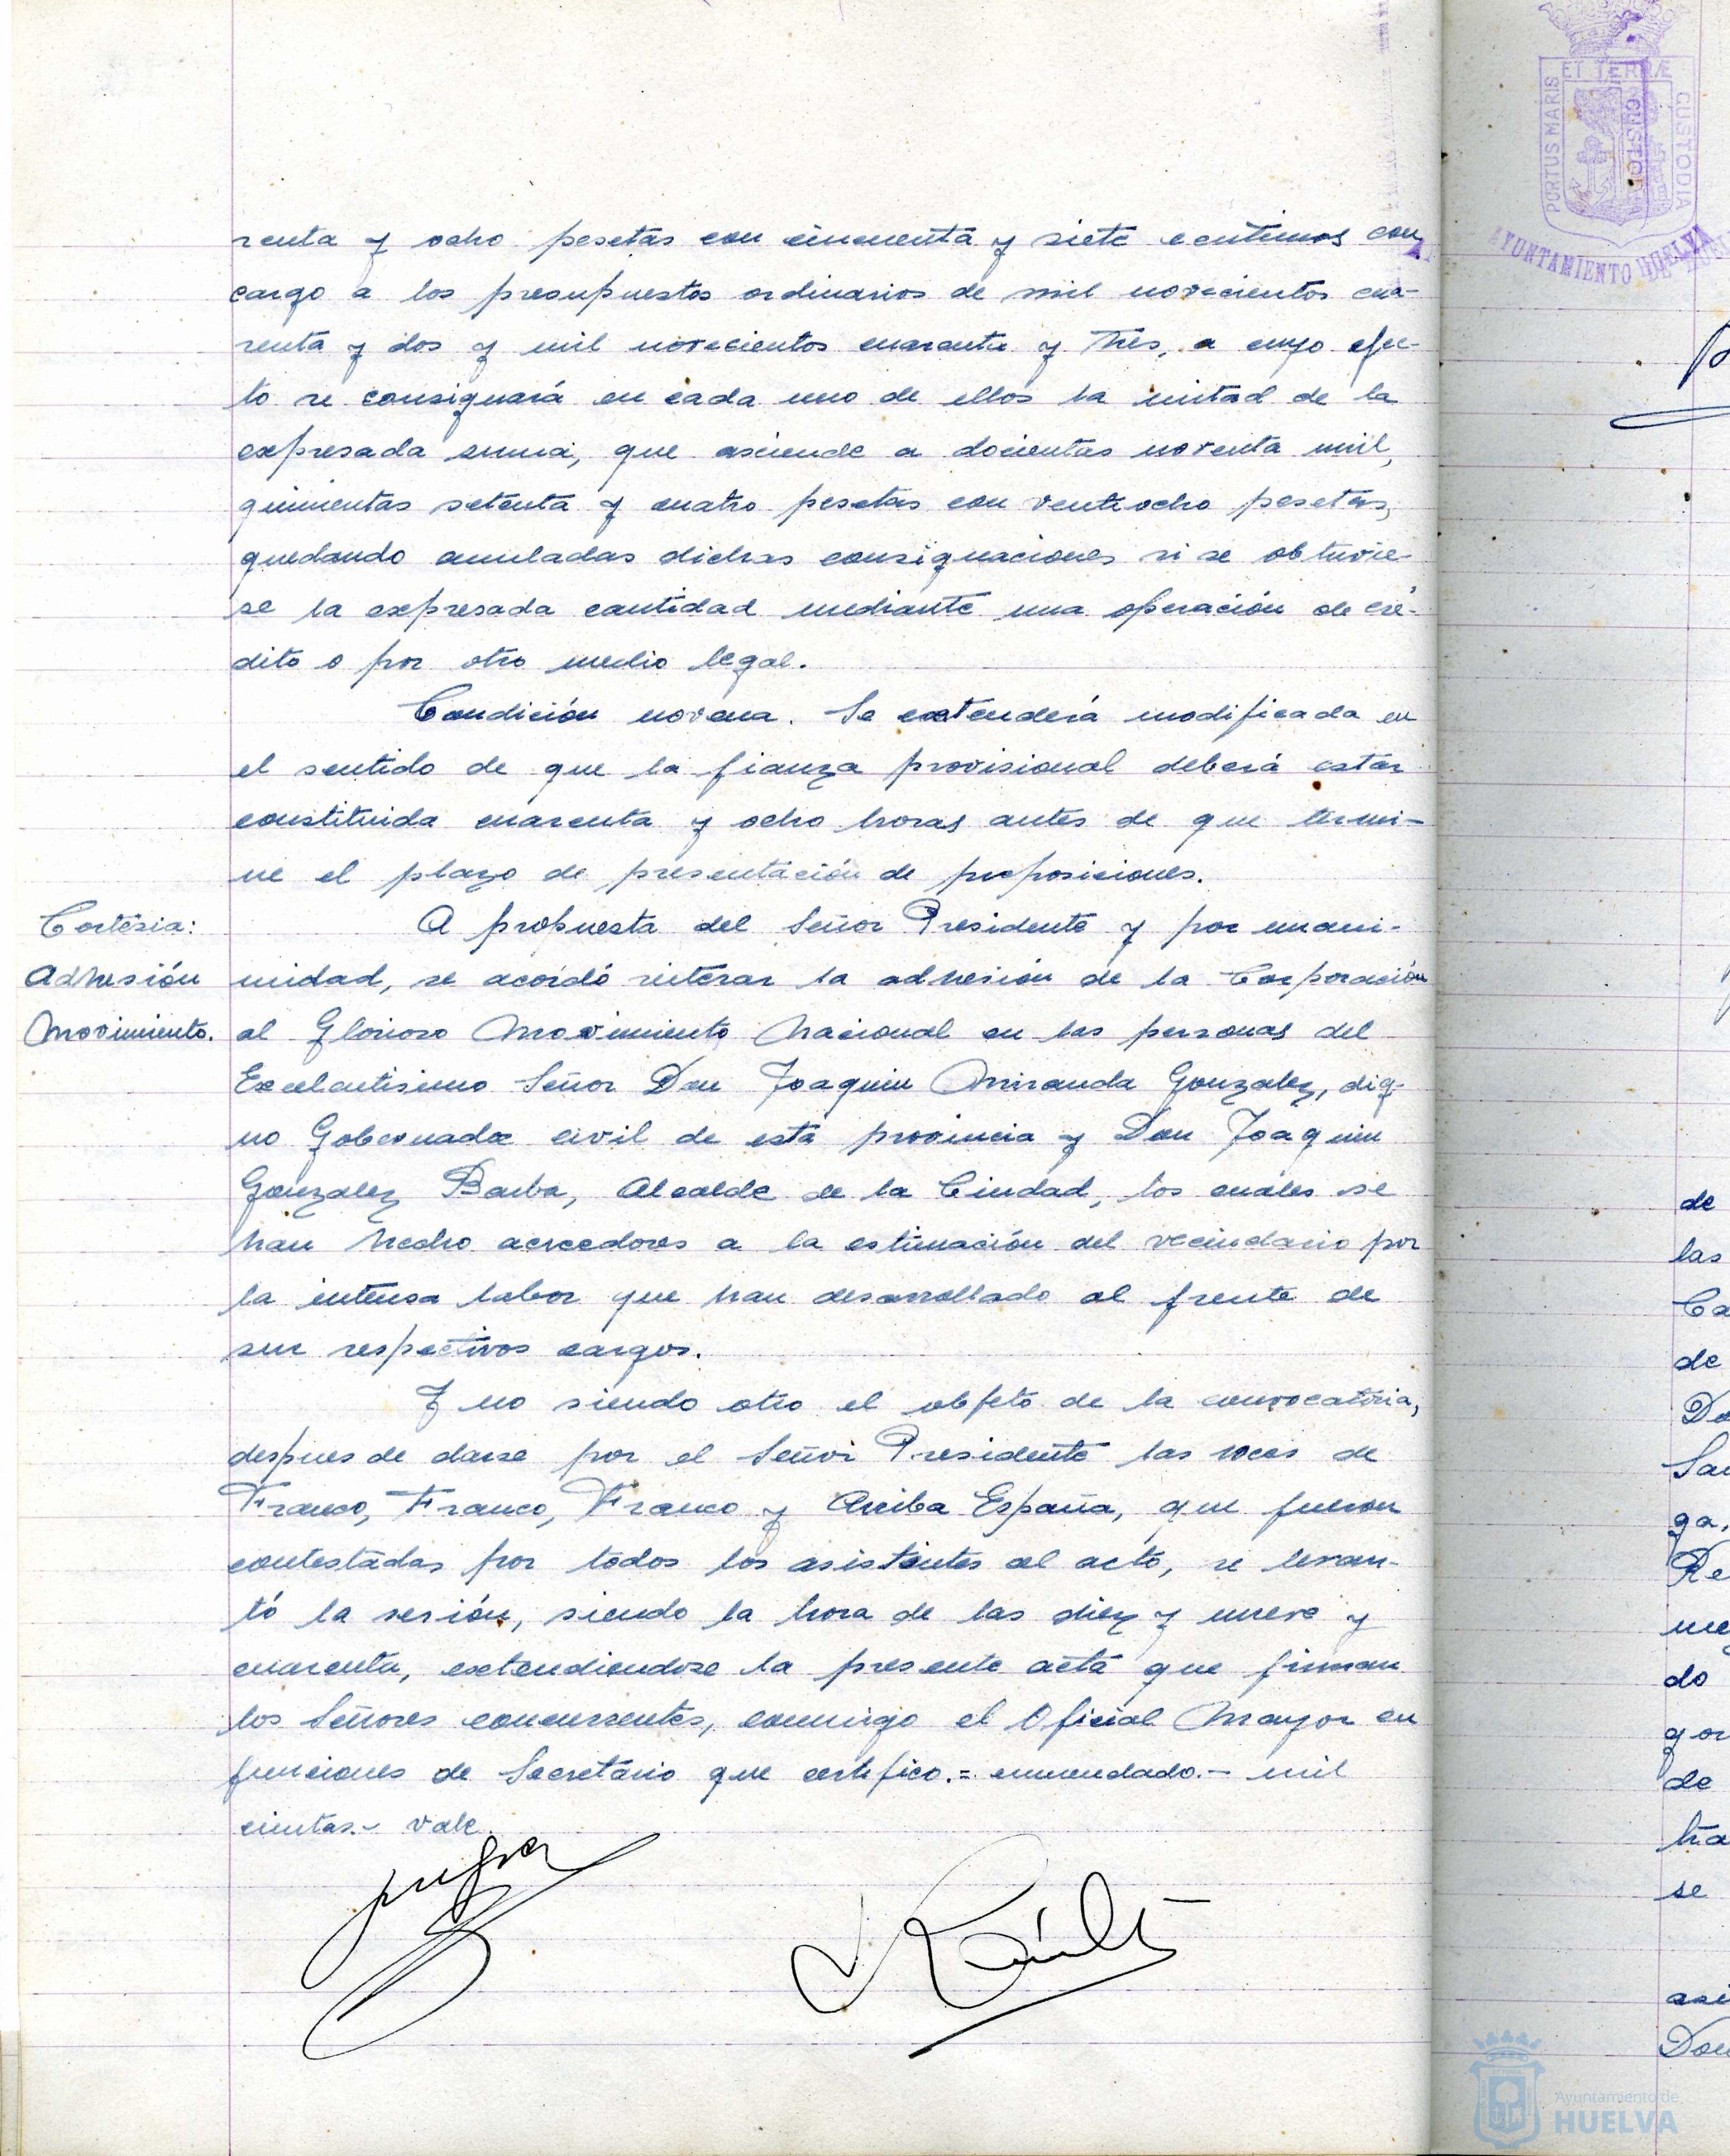 renta y ocho pesetas con cincuenta y siete centimos con
cargo a los presupuestos ordinarios de mil novecientos cua-
renta y dos y mil novecientos cuarenta y tres, a cuyo efec-
to se consignará en cada uno de ellos la mitad de la
expresada suma, que asciende a docientas noventa mil,
quinientas setenta y cuatro pesetas con ventiocho pesetas,
quedando anuladas dichas consignaciones si se obtuvie-
se la expresada cantidad mediante una operación de cré-
dito o por otro medio legal.
Condición novena. Se extenderá modificada en
el sentido de que la fianza provisional deberá estar
constituida cuarenta y ocho horas antes de que termi-
ne el plazo de presentación de proposiciones.
Cortésia:
Adhesión
Movimiento.
A propuesta del Señor Presidente y por unani-
midad, se acordó reiterar la adhesión de la Corporación
al Glorioso Movimiento Nacional en las personas del
Excelentisimo Señor Don Joaquin Miranda Gonzalez, dig-
no Gobernador civil de esta provincia y Don Joaquin
Gonzalez Barba, Alcalde de la Ciudad, los cuáles se
han hecho acreedores a la estimación del vecindario por
la intensa labor que han desarrollado al frente de
sus respectivos cargos.
Y no siendo otro el objeto de la convocatoria,
despues de darse por el Señor Presidente las voces de
Franco, Franco, Franco y Arriba España, que fueron
contestadas por todos los asistentes al acto, se levan-
tó la sesión, siendo la hora de las diez y nueve y
cuarenta, extendiendose la presente acta que firman
los Señores concurrentes, conmigo el Oficial Mayor en
funciones de Secretario que certifico.= enmendado.- mil
cientas.- vale.
PORTUS MARIS ET TERRÆ CUSTODIA
AYUNTAMIENTO HUELVA
de
las
Ca
de
Do
San
ga,
Re
me
do
gor
de
tra
se
asi
Don
Ayuntamiento de
HUELVA